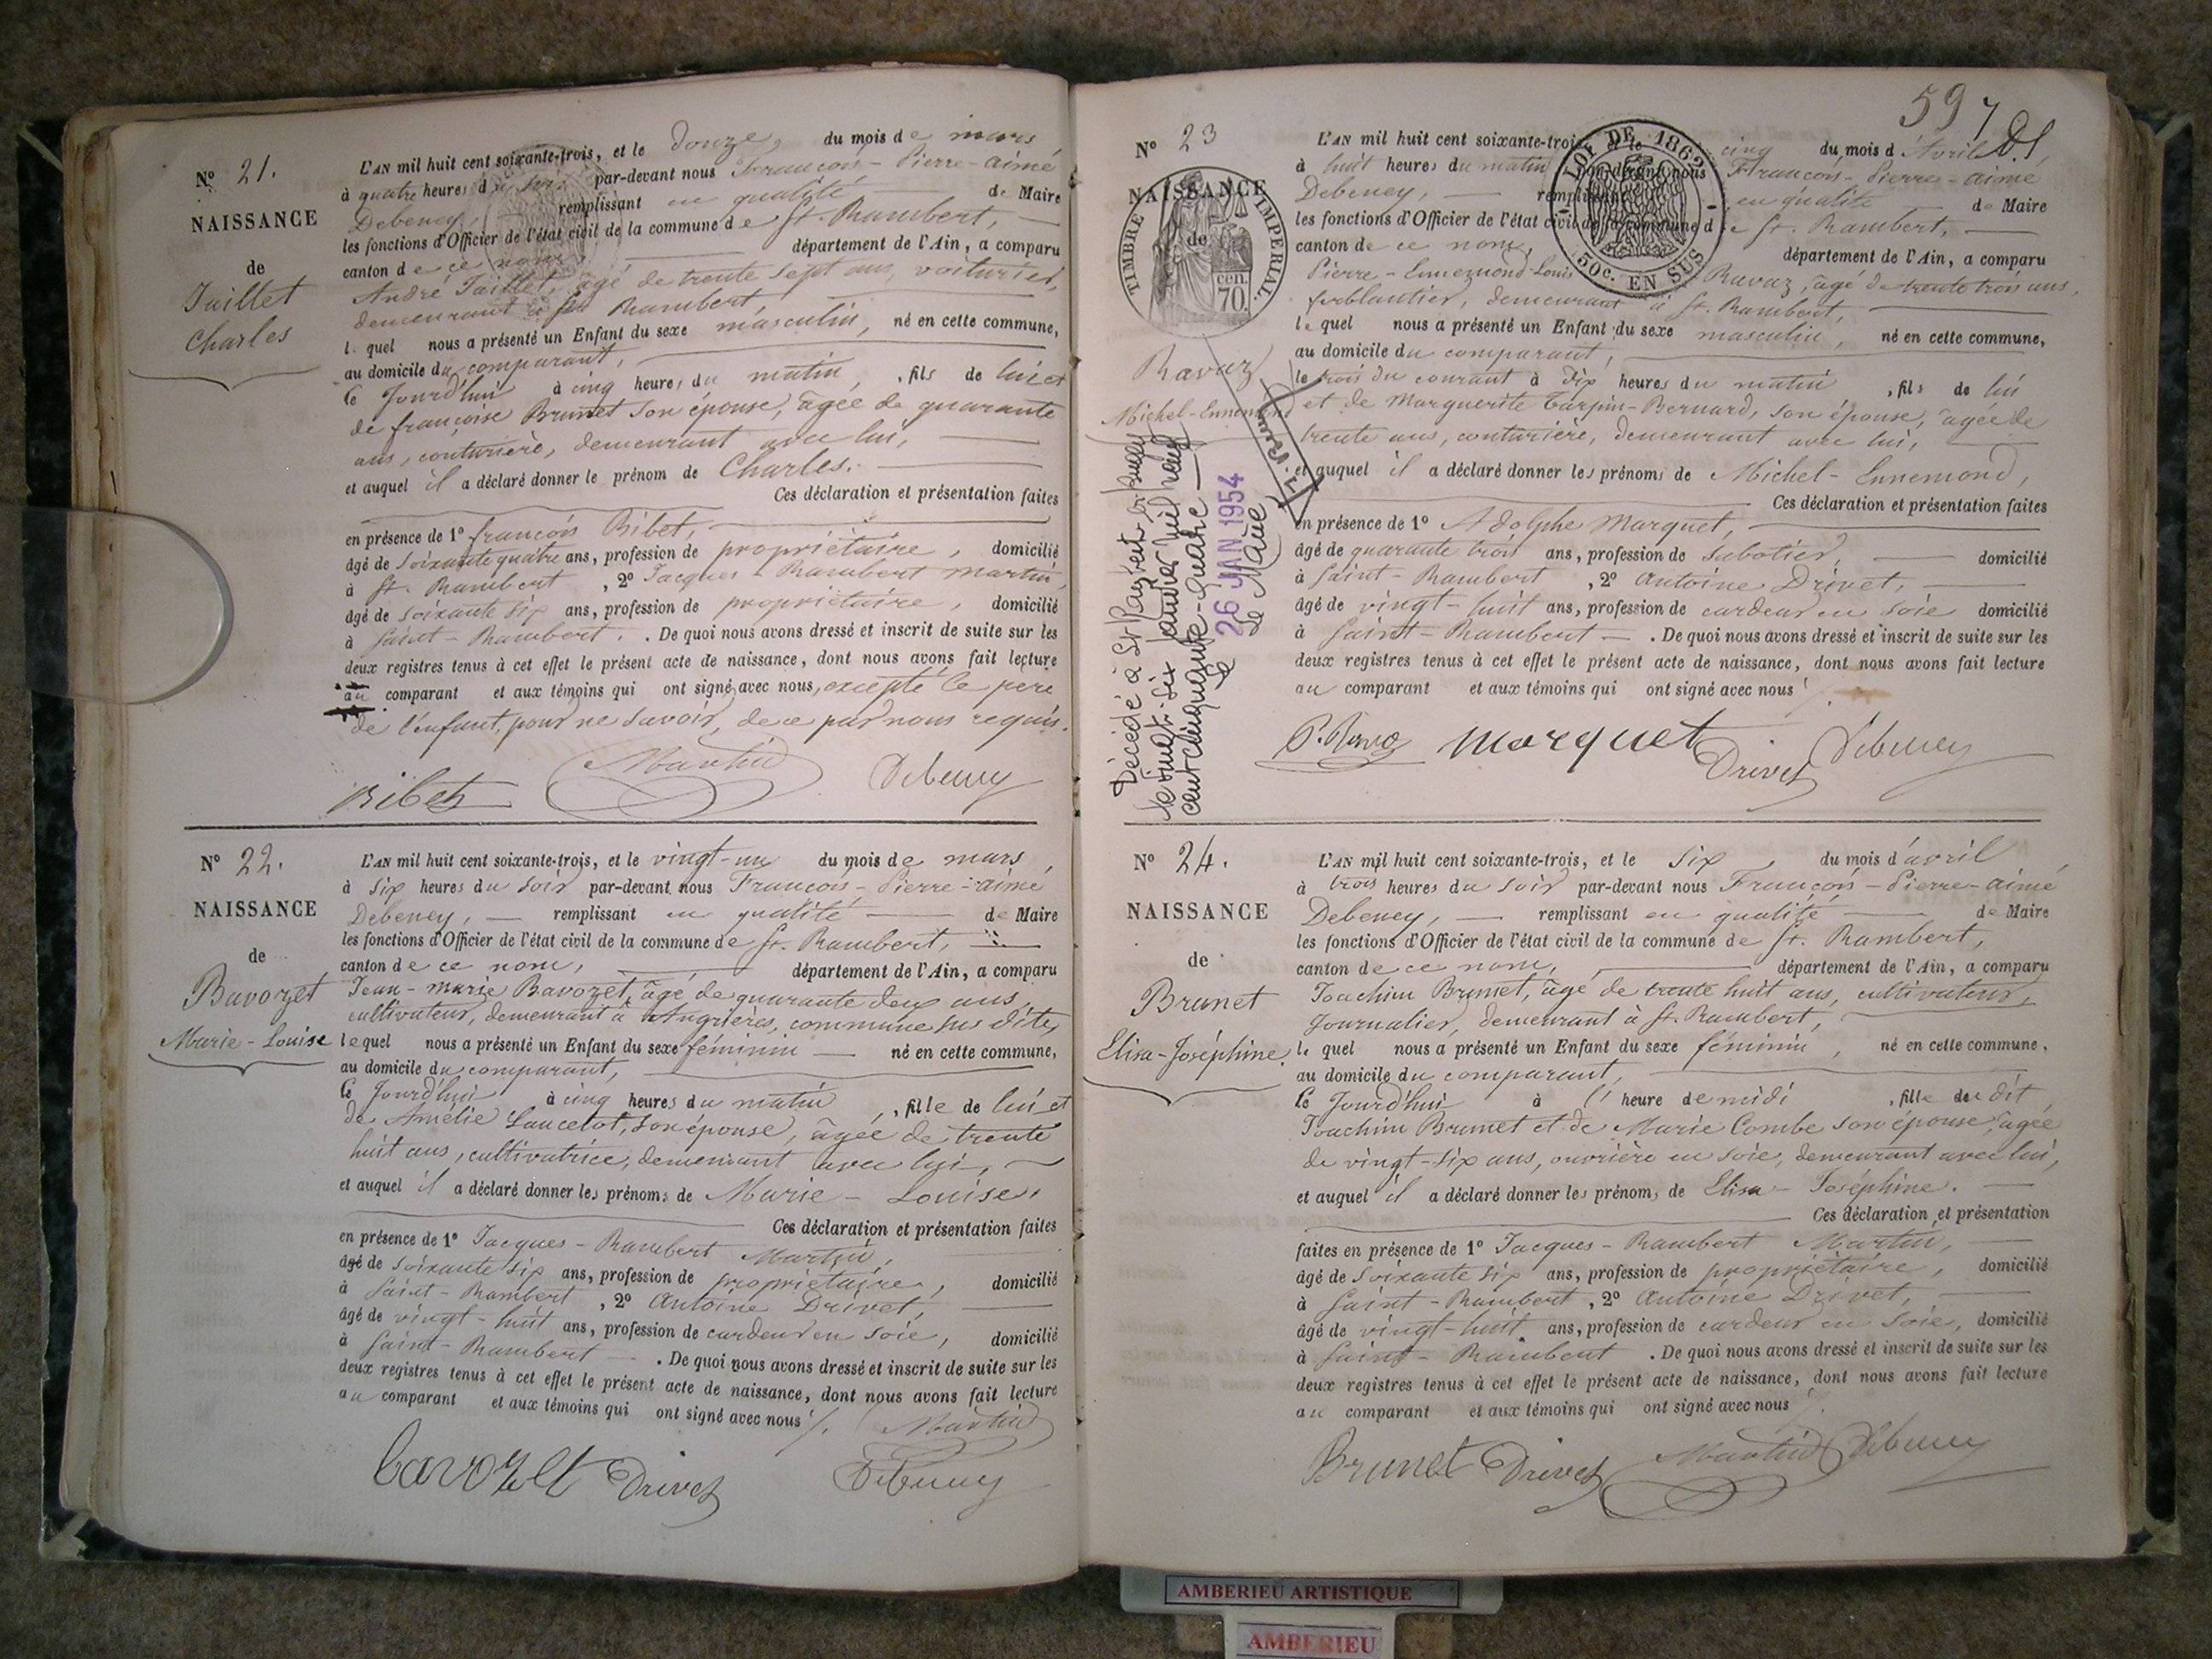 N° 21.
NAISSANCE
de
Juillet
Charles
L'AN mil huit cent soixante-trois, et le douze, du mois de mars
à quatre heures du soir par-devant nous François-Pierre-aimé
Debeney, remplissant en qualité de Maire
les fonctions d'Officier de l'état civil de la commune de St. Rambert,
canton de ce nom, département de l'Ain, a comparu
André Juillet, âgé de trente sept ans, voiturier,
demeurant à St. Rambert,
lequel nous a présenté un Enfant du sexe masculin, né en cette commune,
au domicile du comparant,
le Jourd'hui à cinq heures du matin, fils de lui et
de françoise Brunet son épouse, âgée de quarante
ans, couturière, demeurant avec lui,
et auquel il a déclaré donner le prénom de Charles.
Ces déclaration et présentation faites
en présence de 1° françois Ribet,
âgé de soixante quatre ans, profession de propriétaire, domicilié
à St. Rambert, 2° Jacques-Rambert Martin,
âgé de soixante six ans, profession de propriétaire, domicilié
à Saint-Rambert. De quoi nous avons dressé et inscrit de suite sur les
deux registres tenus à cet effet le présent acte de naissance, dont nous avons fait lecture
au comparant et aux témoins qui ont signé avec nous, excepté le père
de l'enfant, pour ne savoir, de ce par nous requis.
Ribet Martin Debeney
N° 22.
NAISSANCE
de
Bavozet
Marie-Louise
L'AN mil huit cent soixante-trois, et le vingt-un du mois de mars,
à six heures du soir par-devant nous François-Pierre-aimé
Debeney, remplissant en qualité de Maire
les fonctions d'Officier de l'état civil de la commune de St. Rambert,
canton de ce nom, département de l'Ain, a comparu
Jean-marie Bavozet, âgé de quarante deux ans,
cultivateur, demeurant à Angrières, commune sus dite,
lequel nous a présenté un Enfant du sexe féminin né en cette commune,
au domicile du comparant,
le Jourd'hui à cinq heures du matin, fille de lui et
de Amélie Lancelot, son épouse, âgée de trente
huit ans, cultivatrice, demeurant avec lui,
et auquel il a déclaré donner les prénoms de Marie-Louise.
Ces déclaration et présentation faites
en présence de 1° Jacques-Rambert Martin,
âgé de soixante six ans, profession de propriétaire, domicilié
à Saint-Rambert, 2° Antoine Drivet,
âgé de vingt-huit ans, profession de cardeur en soie, domicilié
à Saint-Rambert. De quoi nous avons dressé et inscrit de suite sur les
deux registres tenus à cet effet le présent acte de naissance, dont nous avons fait lecture
au comparant et aux témoins qui ont signé avec nous.
Martin
bavozet Drivet Debeney
597
N° 23
NAISSANCE
de
TIMBRE IMPERIAL
70 cen.
LOI DE 1862
50c. EN SUS
Ravaz
Michel-Ennemond
Décédé à St Rambert en Bugey
le vingt-six janvier mil neuf
cent cinquante-quatre
le 26 JAN 1954
Le Maire
L'AN mil huit cent soixante-trois, et le cinq du mois d'Avril,
à huit heures du matin par-devant nous François-Pierre-aimé
Debeney, remplissant en qualité de Maire
les fonctions d'Officier de l'état civil de la commune de St. Rambert,
canton de ce nom, département de l'Ain, a comparu
Pierre-Ennemond-Louis Ravaz, âgé de trente trois ans,
ferblantier, demeurant à St. Rambert,
lequel nous a présenté un Enfant du sexe masculin, né en cette commune,
au domicile du comparant,
le trois du courant à dix heures du matin, fils de lui
et de Marguerite Carpin-Bernard, son épouse, âgée de
trente ans, couturière, demeurant avec lui,
et auquel il a déclaré donner les prénoms de Michel-Ennemond,
Ces déclaration et présentation faites
en présence de 1° Adolphe Marquet,
âgé de quarante trois ans, profession de sabotier, domicilié
à Saint-Rambert, 2° Antoine Drivet,
âgé de vingt-huit ans, profession de cardeur en soie domicilié
à Saint-Rambert. De quoi nous avons dressé et inscrit de suite sur les
deux registres tenus à cet effet le présent acte de naissance, dont nous avons fait lecture
au comparant et aux témoins qui ont signé avec nous
P. Ravaz Marquet Drivet Debeney
N° 24.
NAISSANCE
de
Brunet
Elisa-Joséphine.
L'AN mil huit cent soixante-trois, et le six, du mois d'avril,
à trois heures du soir par-devant nous François-Pierre-aimé
Debeney, remplissant en qualité de Maire
les fonctions d'Officier de l'état civil de la commune de St. Rambert,
canton de ce nom, département de l'Ain, a comparu
Joachim Brunet, âgé de trente huit ans, cultivateur,
Journalier, demeurant à St. Rambert,
lequel nous a présenté un Enfant du sexe féminin, né en cette commune,
au domicile du comparant,
le Jourd'hui à l'heure de midi, fille du dit
Joachim Brunet et de Marie Combe son épouse, âgée
de vingt-six ans, ouvrière en soie, demeurant avec lui,
et auquel il a déclaré donner les prénoms de Elisa-Joséphine.
Ces déclaration et présentation
faites en présence de 1° Jacques-Rambert Martin,
âgé de soixante six ans, profession de propriétaire, domicilié
à Saint-Rambert, 2° Antoine Drivet,
âgé de vingt-huit ans, profession de cardeur en soie, domicilié
à Saint-Rambert. De quoi nous avons dressé et inscrit de suite sur les
deux registres tenus à cet effet le présent acte de naissance, dont nous avons fait lecture
au comparant et aux témoins qui ont signé avec nous
Brunet Drivet Martin Debeney
AMBERIEU ARTISTIQUE
AMBERIEU